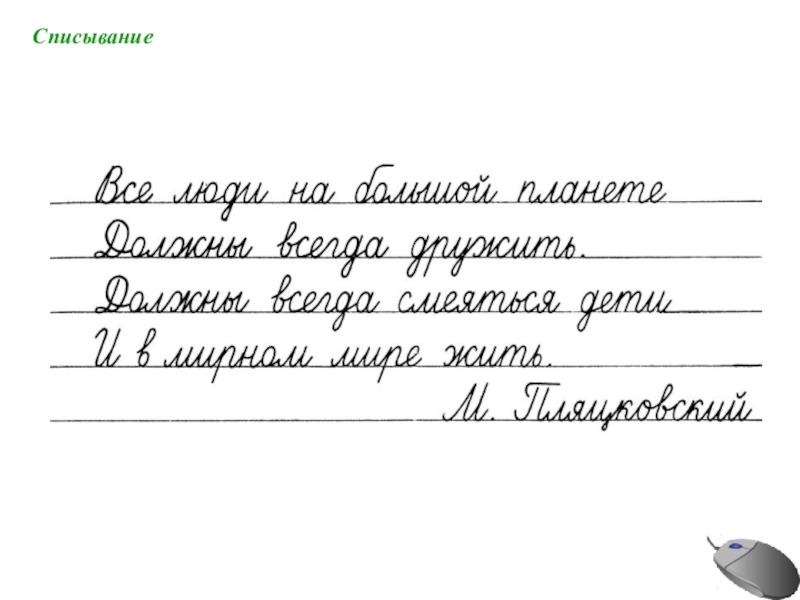 Списывание
Все люди на большой планете
Должны всегда дружить.
Должны всегда смеяться дети
И в мирном мире жить.
М. Пляцковский